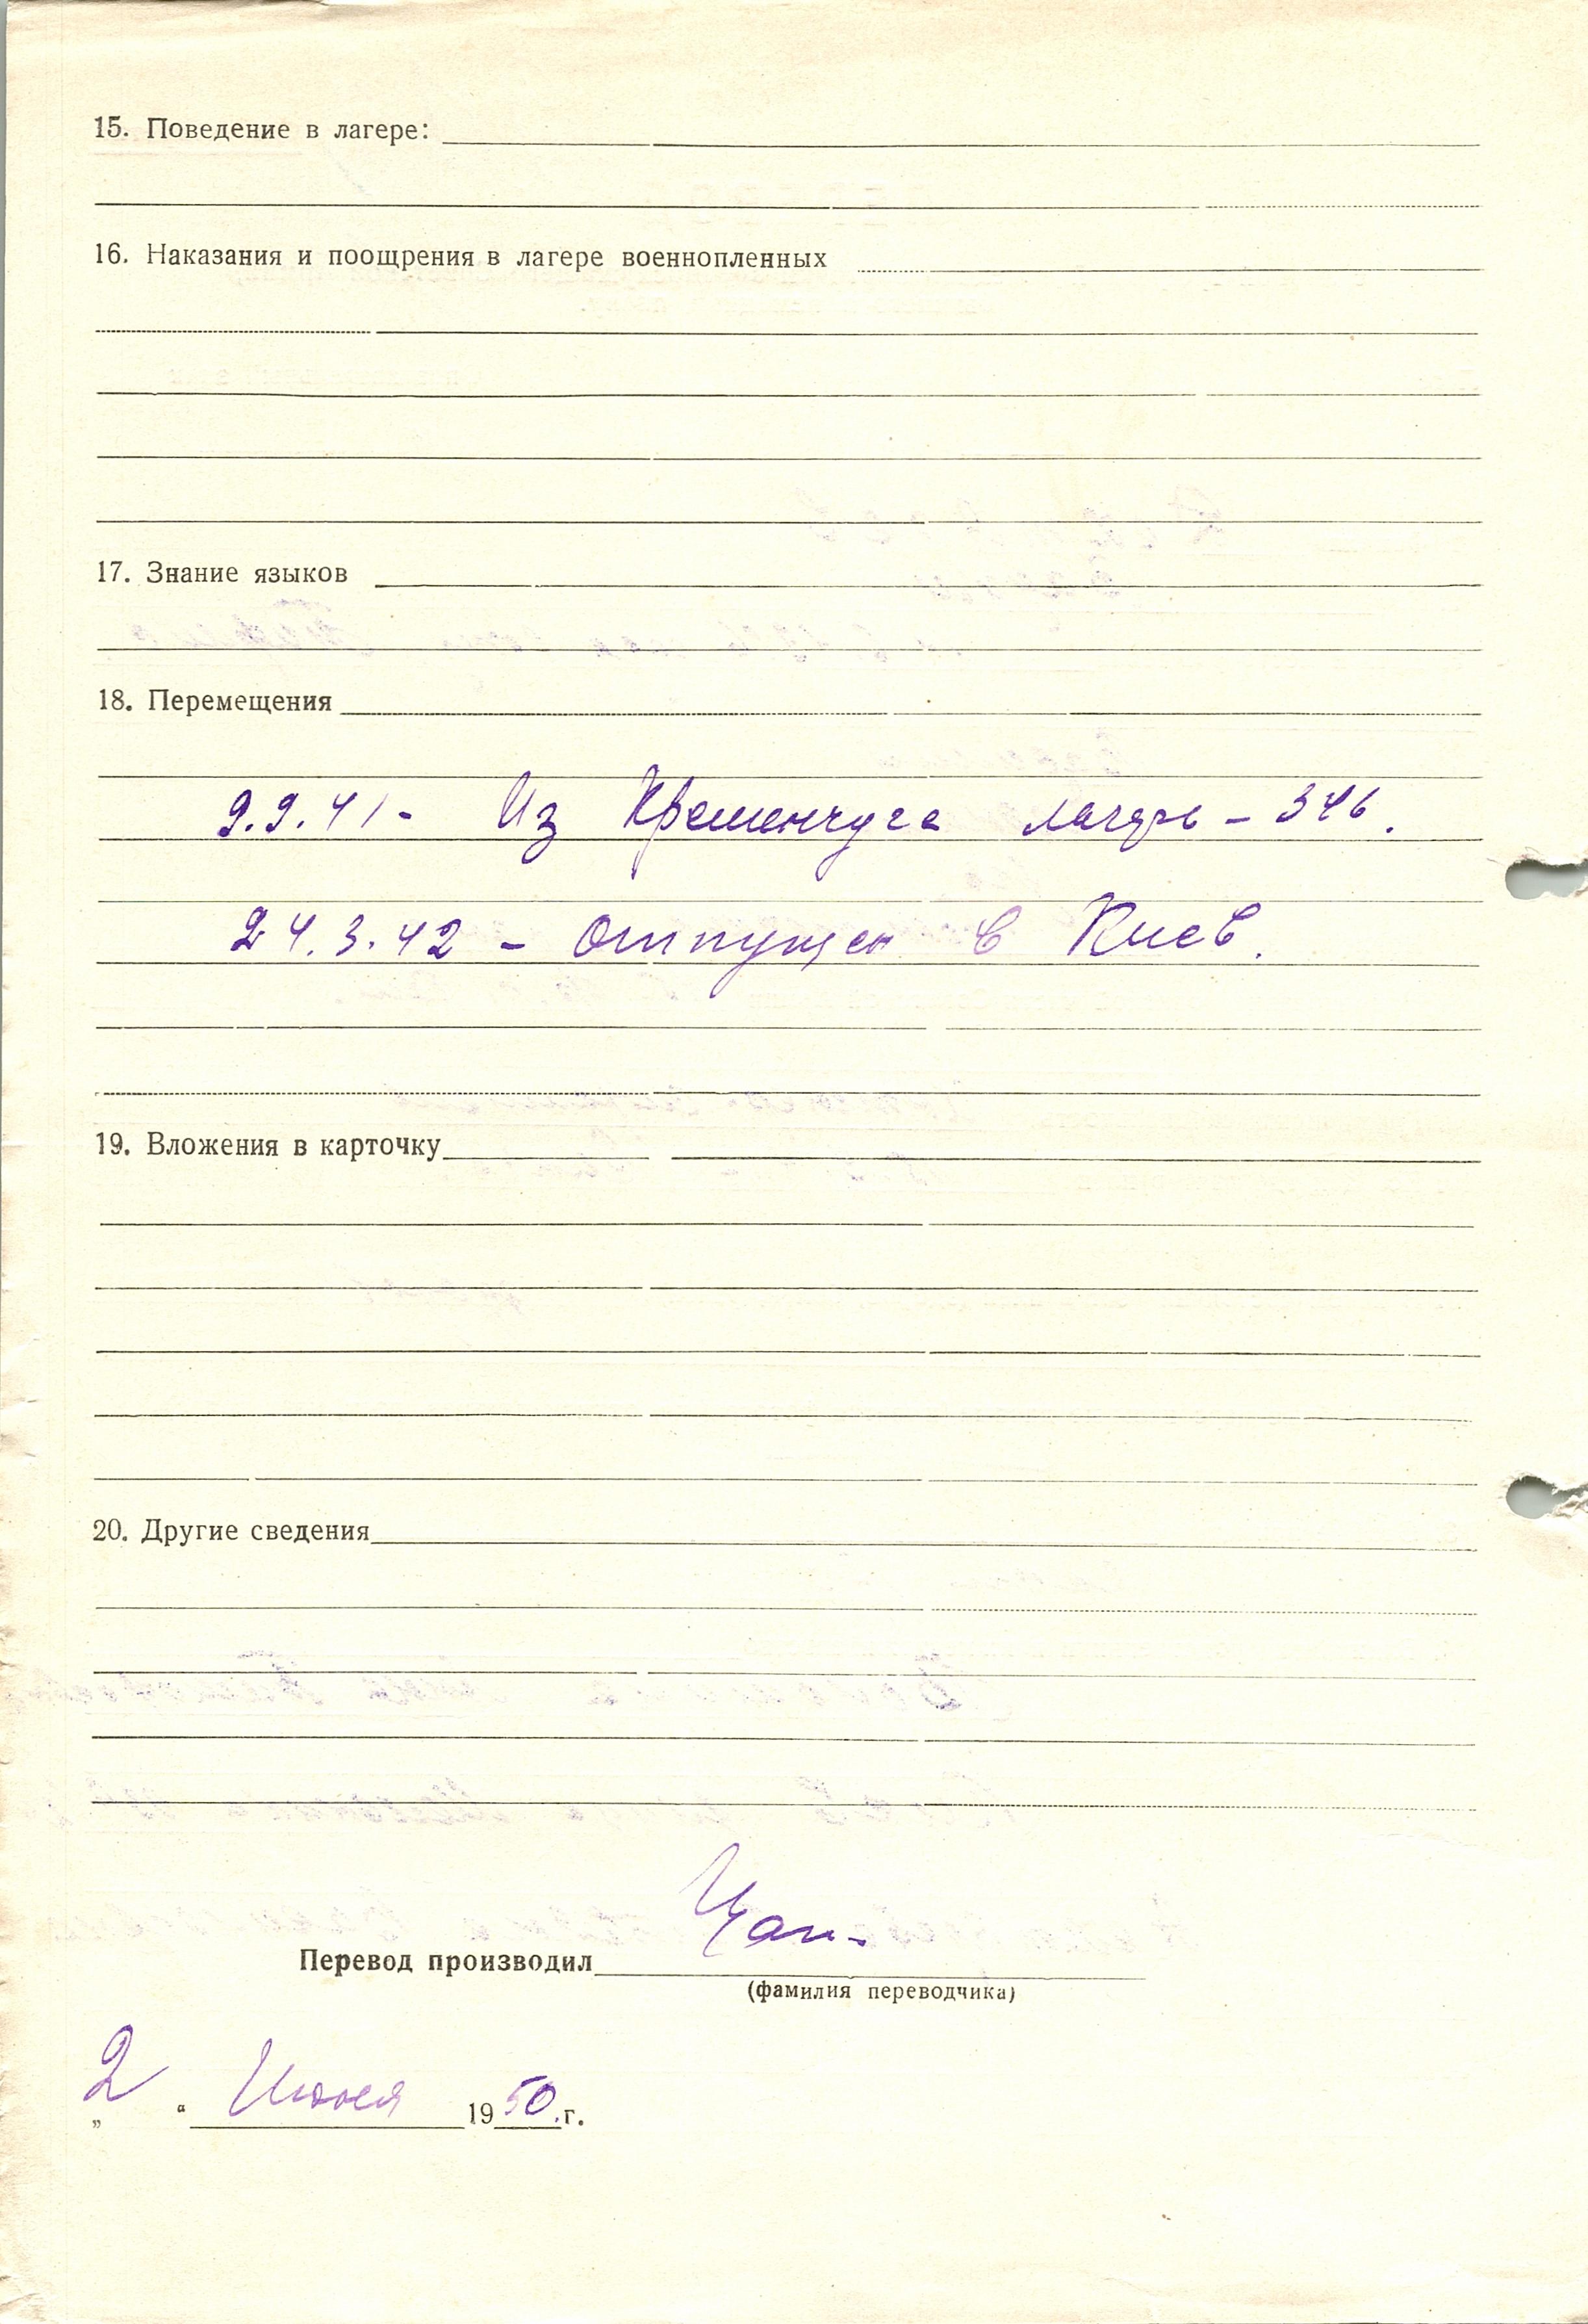 15. Поведение в лагере:
16. Наказания и поощрения в лагере военнопленных
17. Знание языков
18. Перемещения
9.9.41- Из Кременчуга лагерь - 346.
24.3.42 - Отпущен в Киев.
19. Вложения в карточку
20. Другие сведения
Перевод производил
(фамилия переводчика)
„2“ Июня 1950.г.